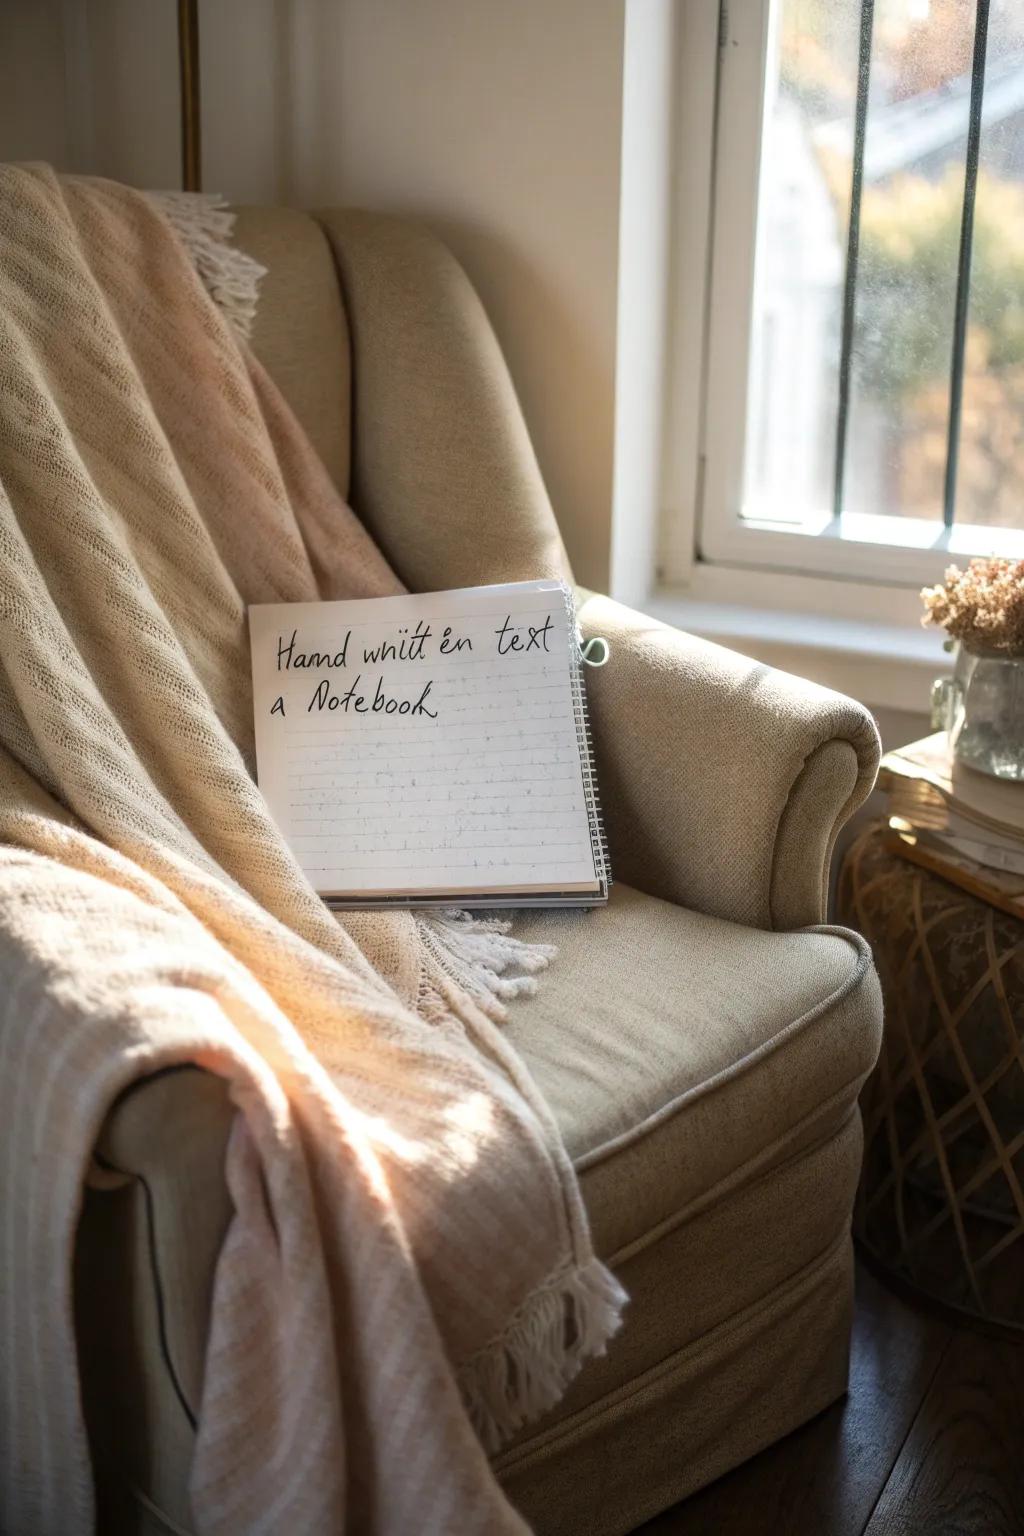 Hamd wniït én text
a Notebook